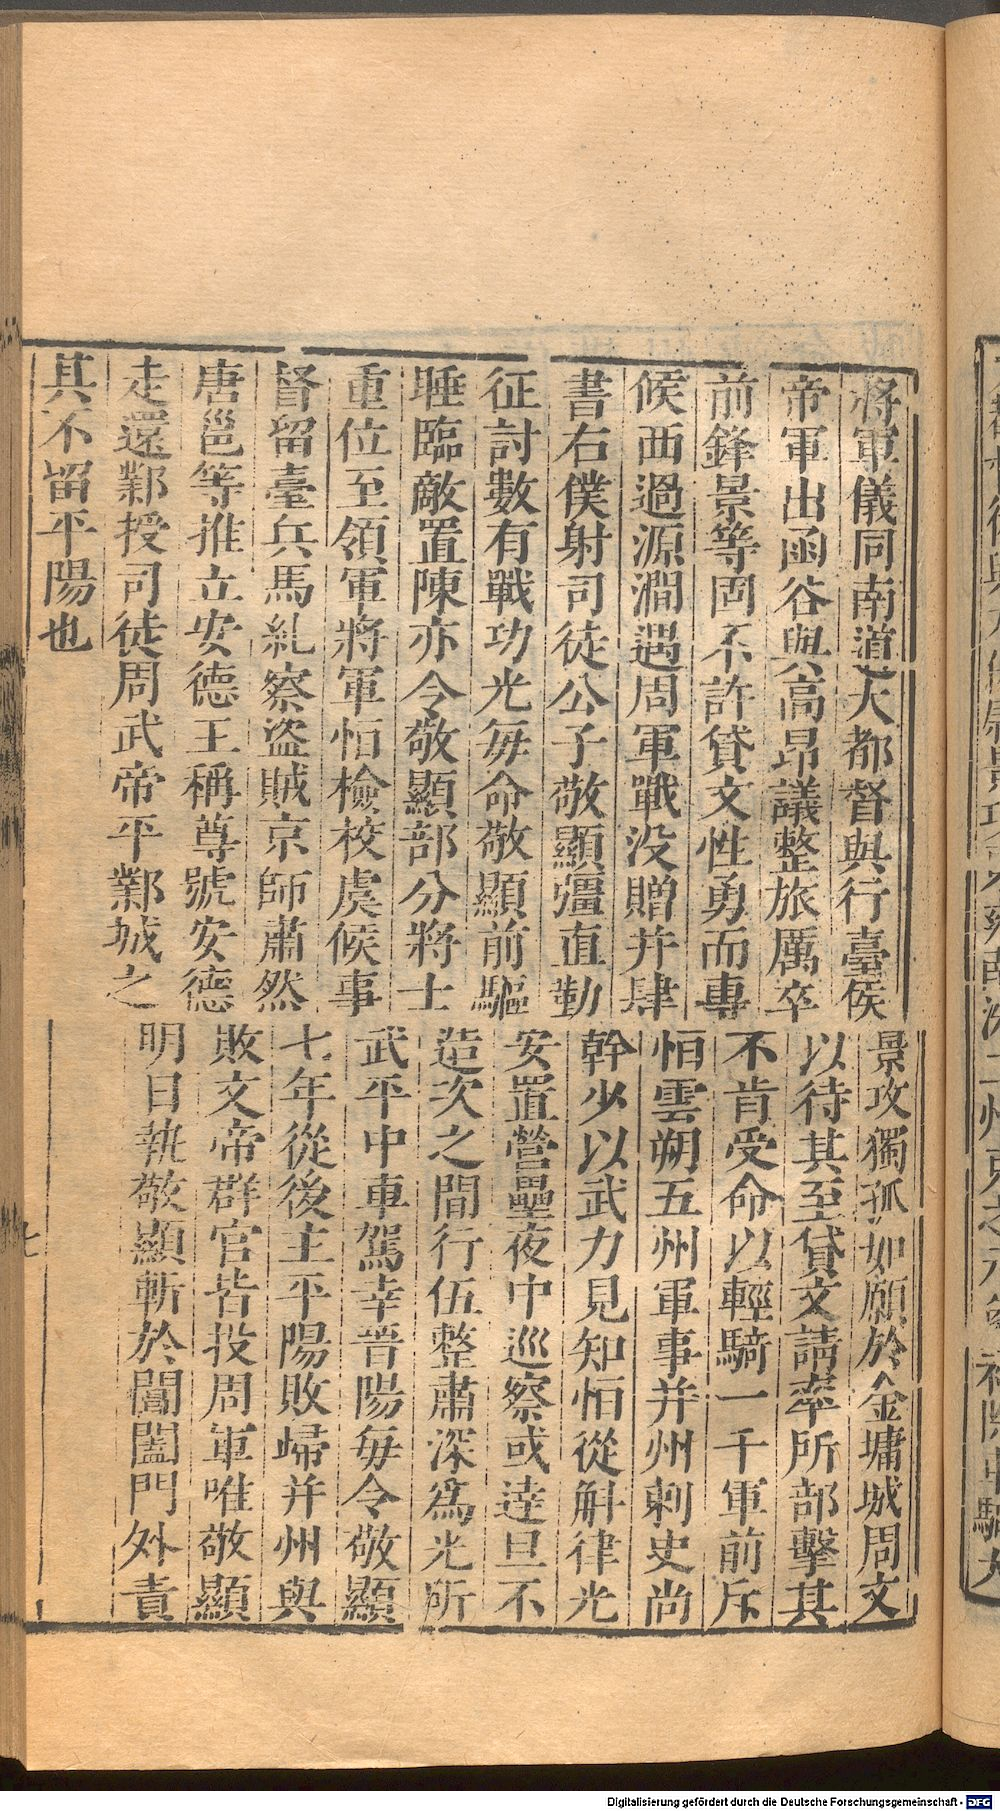 將軍儀同南道大都督與行臺侯景攻獨孤如願於金墉城周文
帝軍出函谷與高昂議整旅厲卒以待其至貸文請率所部擊其
前鋒景等固不許貸文性勇而專不肯受命以輕騎一千軍前斥
候西過源澗遇周軍戰没贈并肆恒雲朔五州軍事并州刺史尚
書右僕射司徒公子敬顯彊直勤幹少以武力見知恒從斛律光
征討數有戰功光每命敬顯前驅安置營壘夜中巡察或逹旦不
睡臨敵置陳亦令敬顯部分將士造次之間行伍整肅深爲光所
重位至領軍將軍恒檢校虞候事武平中車駕幸晉陽每令敬顯
督留臺兵馬糺察盜賊京師肅然七年從後主平陽敗歸并州與
唐邕等推立安德王稱尊號安德敗文帝群官皆投周軍唯敬顯
走還鄴授司徒周武帝平鄴城之明日執敬顯斬於閶闔門外責
其不留平陽也
七
Digitalisierung gefördert durch die Deutsche Forschungsgemeinschaft - DFG